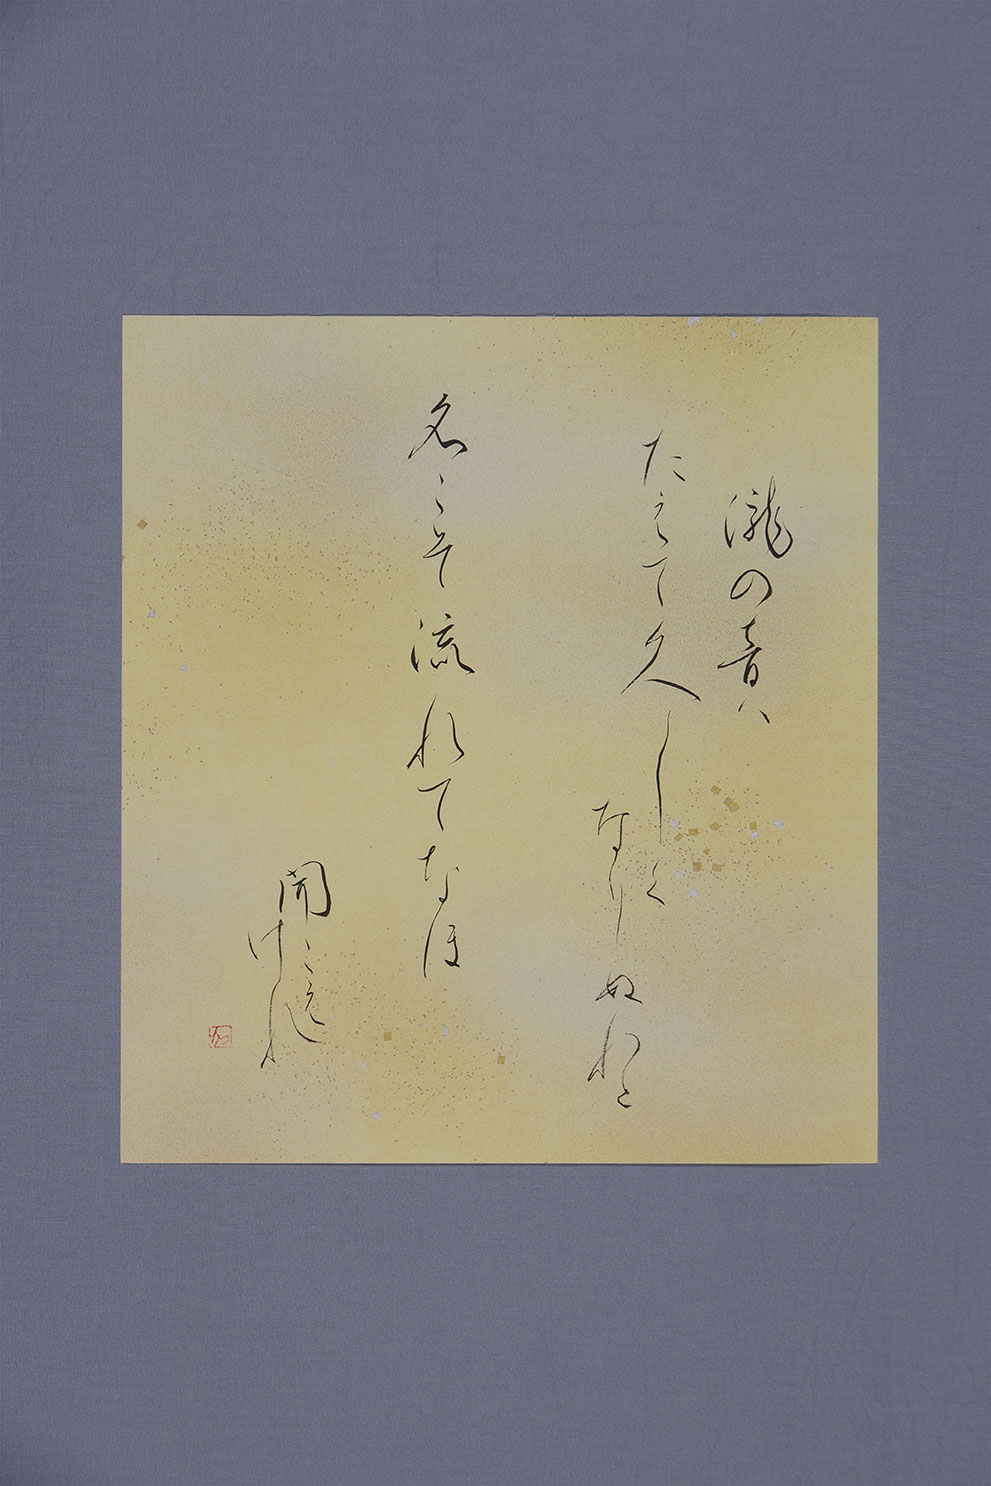 瀧の音ハ
たえて久しく
なりぬれと
名こそ流れてなほ
聞こえ
けれ